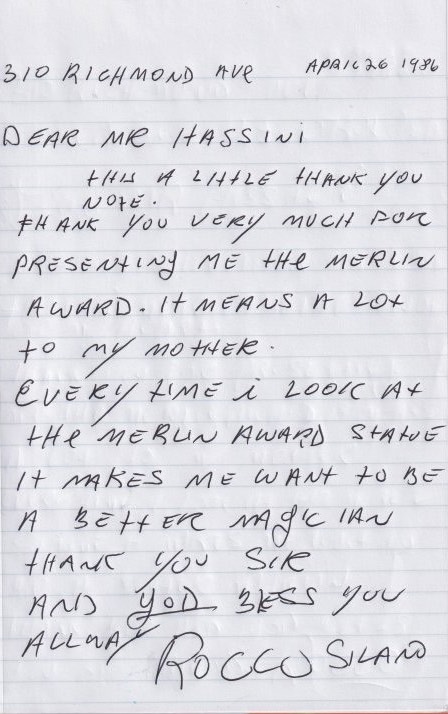 310 RICHMOND AVE APRIL 26 1986
DEAR MR HASSINI
THIS A LITTLE THANK YOU
NOTE.
THANK YOU VERY MUCH FOR
PRESENTING ME THE MERLIN
AWARD. IT MEANS A LOT
TO MY MOTHER.
EVERY TIME i LOOK AT
THE MERLIN AWARD STATUE
IT MAKES ME WANT TO BE
A BETTER MAGICIAN
THANK YOU SIR
AND GOD BLESS YOU
ALLWAY
ROCCO SILANO